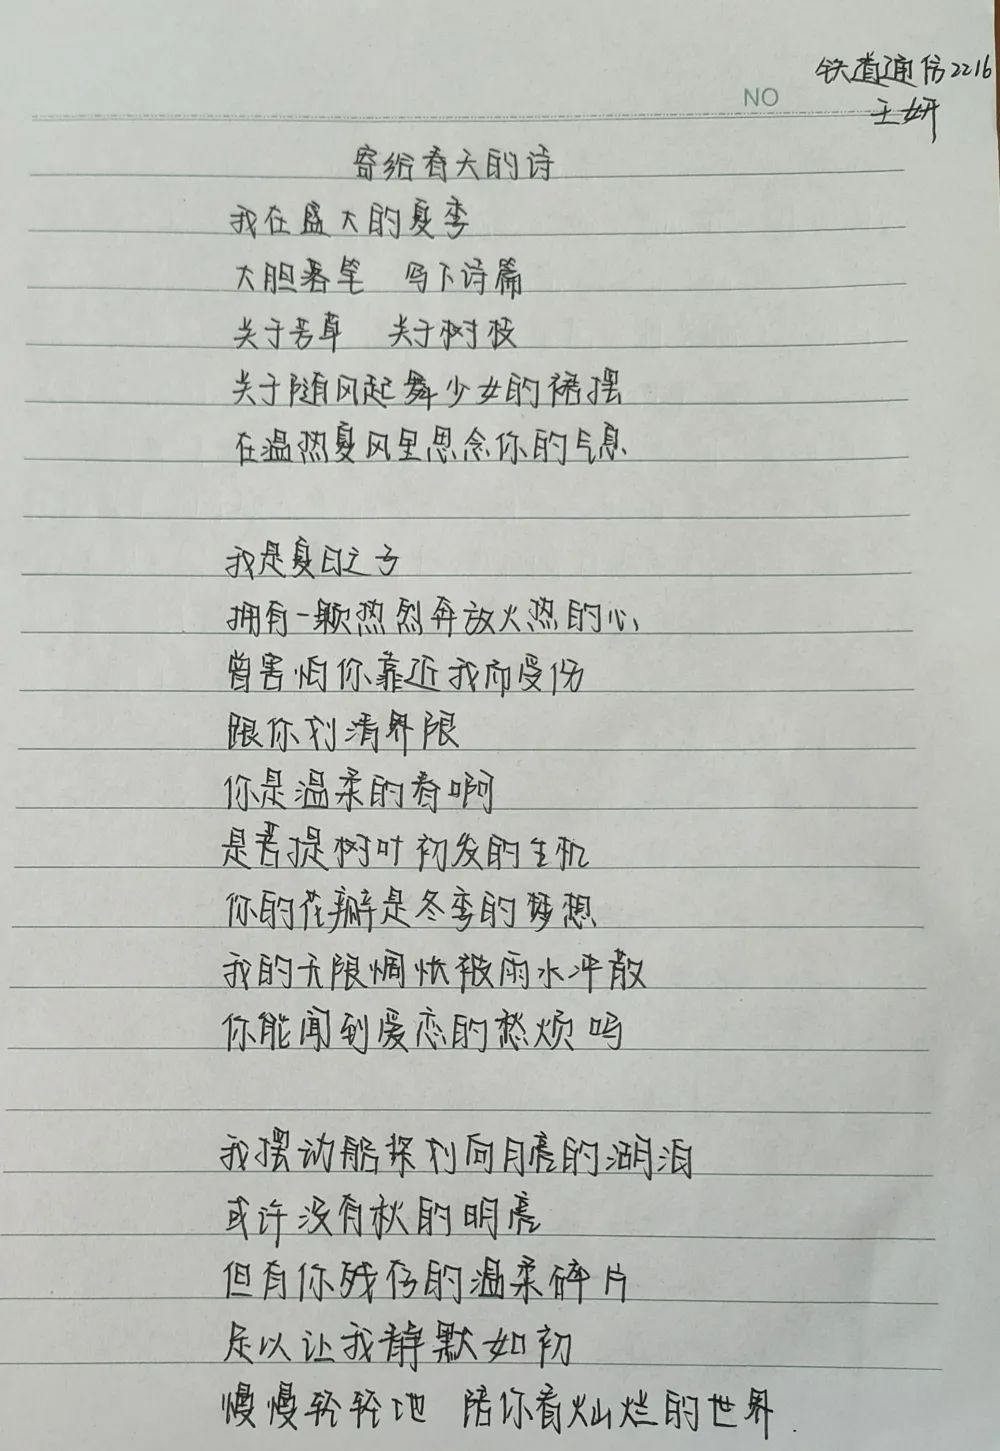 铁道通信2216
王妍
NO
寄给春天的诗
我在盛大的夏季
大胆落笔 写下诗篇
关于芳草 关于树枝
关于随风起舞少女的裙摆
在温热夏风里思念你的气息
我是夏日之子
拥有一颗热烈奔放火热的心
曾害怕你靠近我而受伤
跟你划清界限
你是温柔的春啊
是菩提树叶初发的生机
你的花瓣是冬季的梦想
我的无限惆怅被雨水冲散
你能闻到爱恋的愁烦吗
我摆动船桨划向月亮的湖泊
或许没有秋的明亮
但有你残存的温柔碎片
足以让我静默如初
慢慢轻轻地 陪你看灿烂的世界.